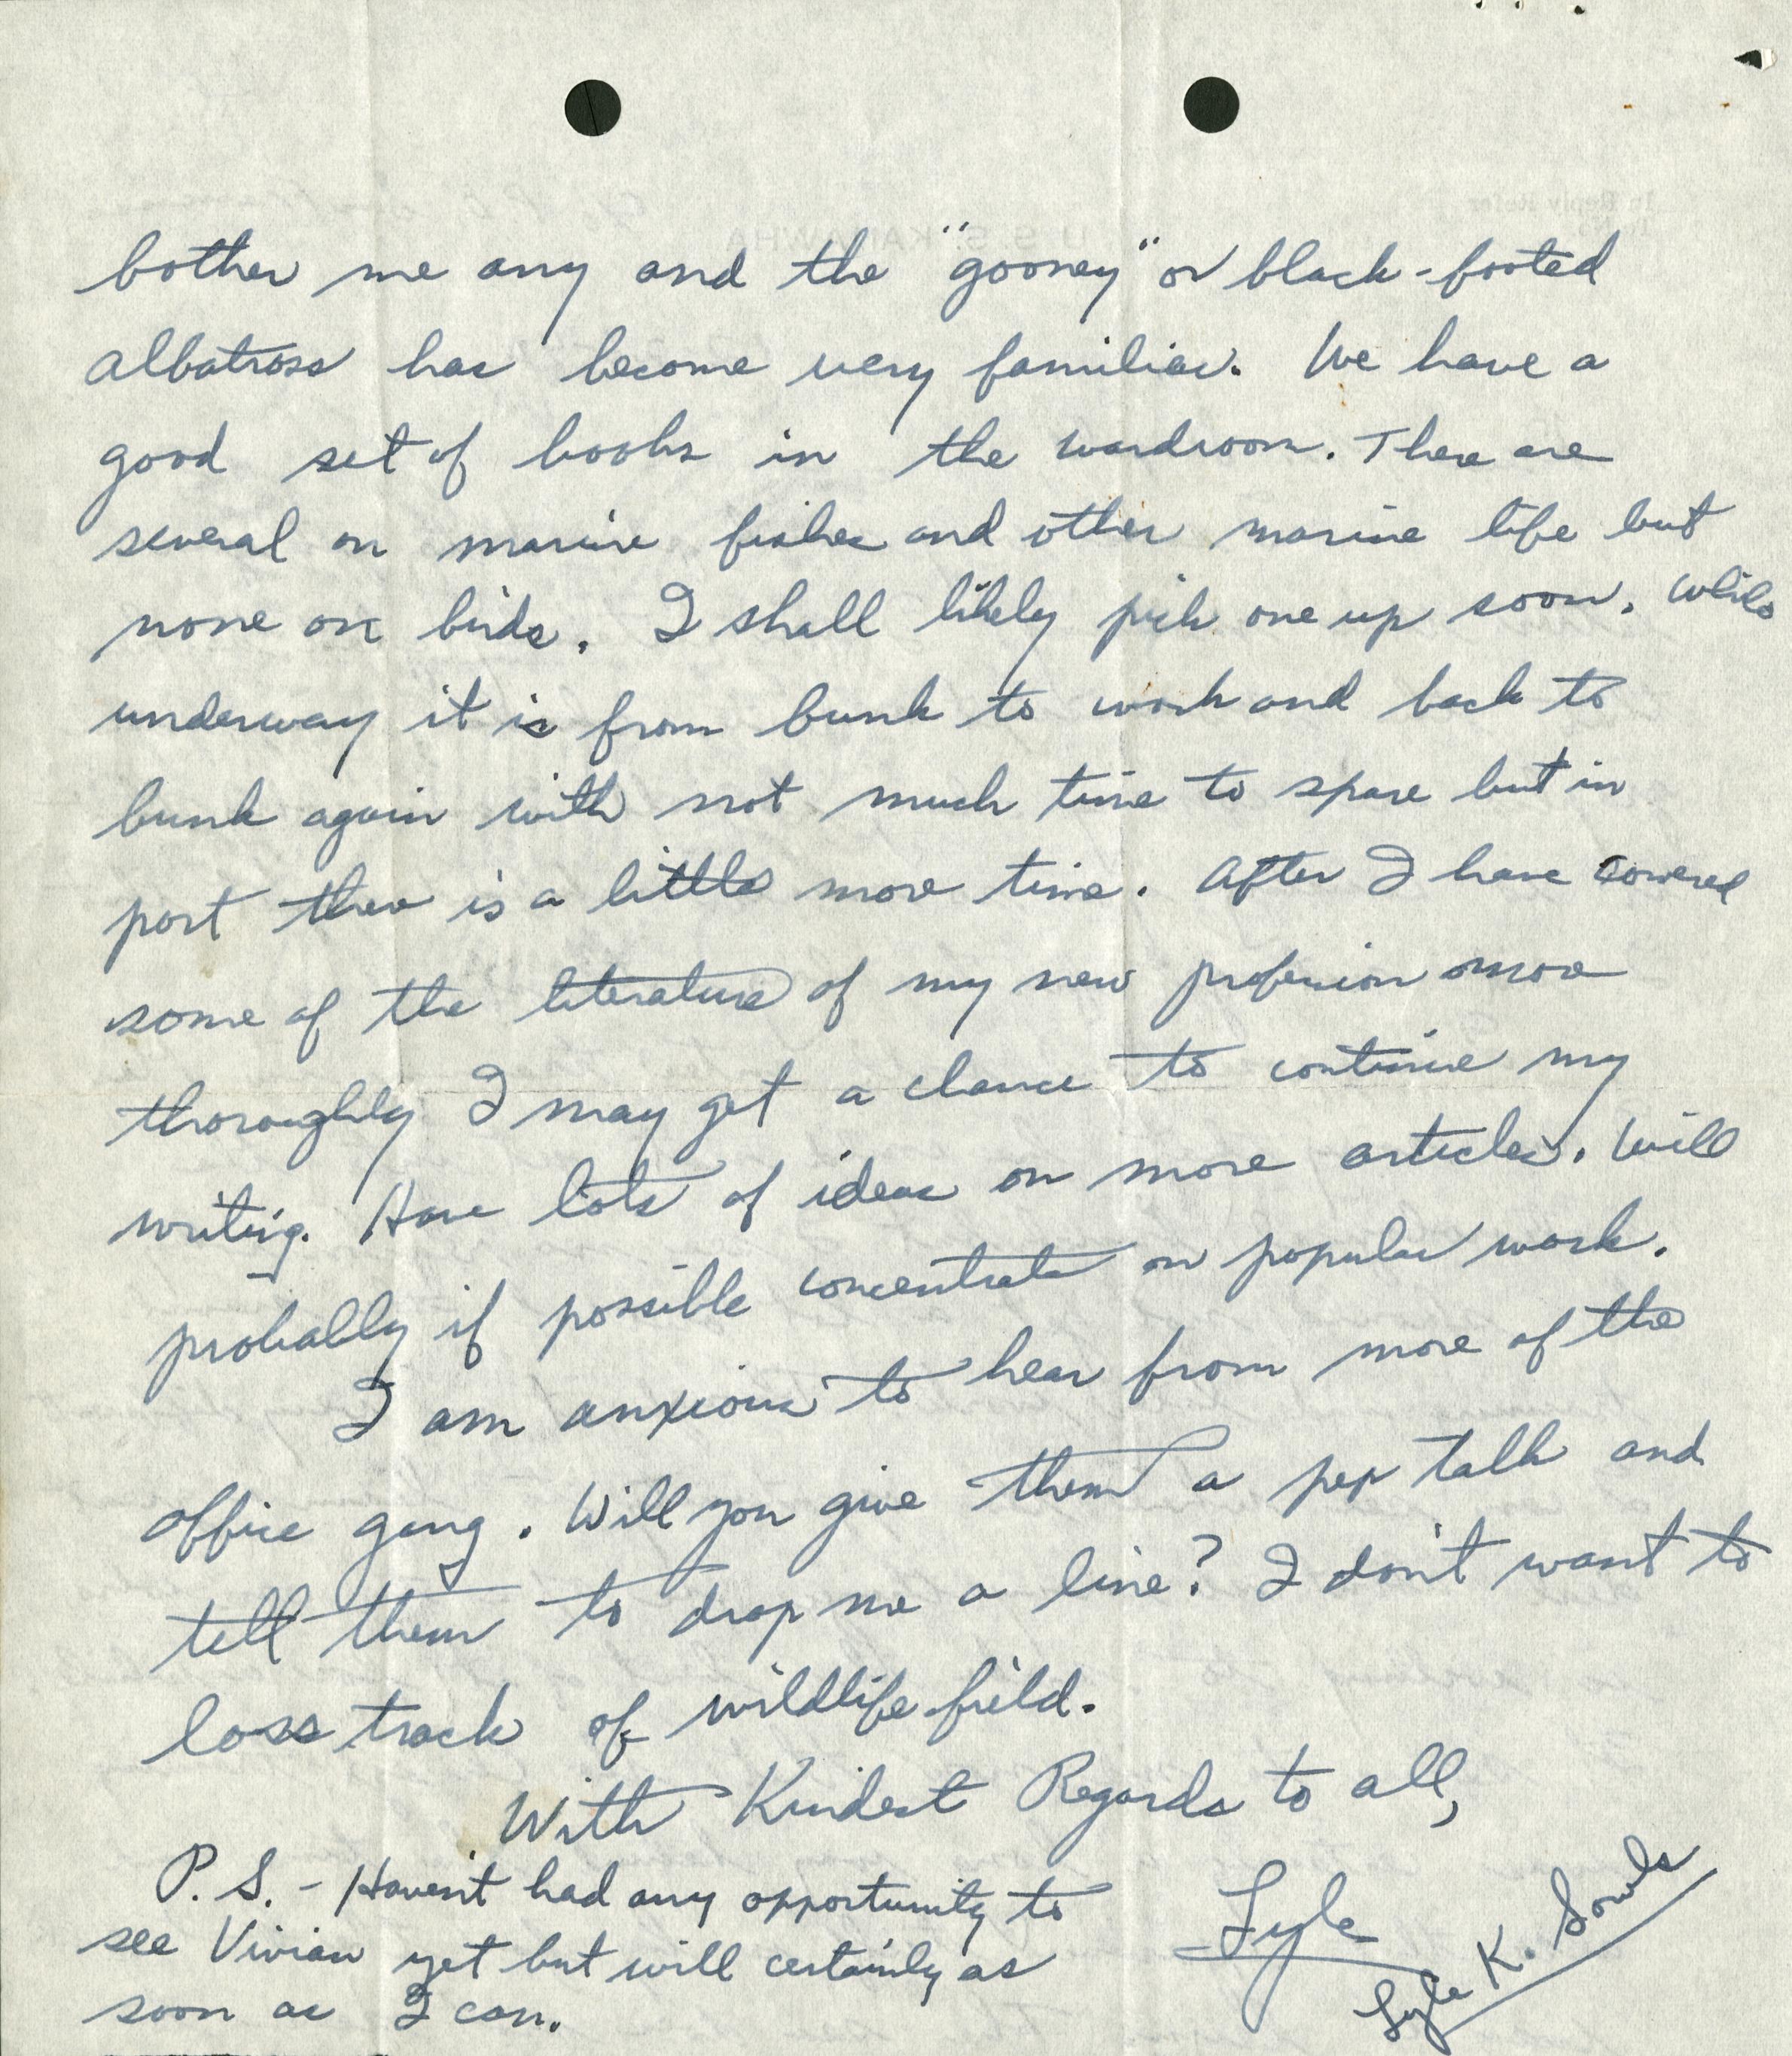 bother me any and the "gooney" or black-footed
albatross has become very familiar. We have a
good set of books in the wardroom. There are
several on marine fishes and other marine life but
none on birds. I shall likely pick one up soon. While
underway it is from bunk to work and back to
bunk again with not much time to spare but in
port there is a little more time. After I have covered
some of the literature of my new profession more
thoroughly I may get a chance to continue my
writing. Have lots of ideas on more articles. Will
probably if possible concentrate on popular work.
I am anxious to hear from more of the
office gang. Will you give them a pep talk and
tell them to drop me a line? I don't want to
loss track of wildlife field.
With Kindest Regards to all,
Lyle
Lyle K. Sowls
P.S. - Haven't had any opportunity to
see Vivian yet but will certainly as
soon as I can.
In Reply Refer
U. S. S. KANAWHA